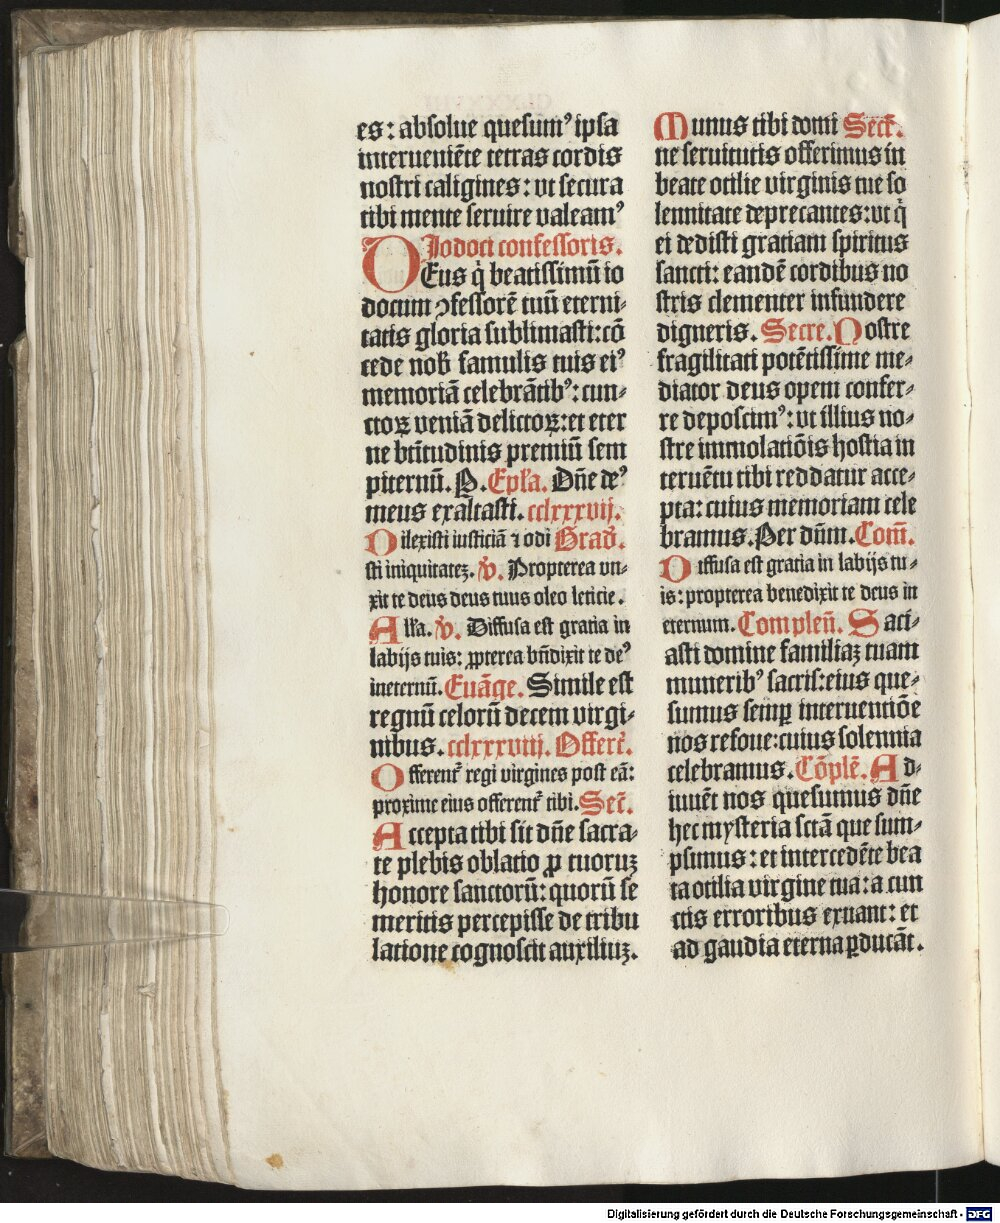 es: absolue quesumꝰ ipsa
interueniēte tetras cordis
nostri caligines: vt secura
tibi mente seruire valeamꝰ
Jodoci confessoris.
DEus q̇ beatissimū io
docum ꝯfessorē tuū eterni⸗
tatis gloria sublimasti: cō
cede nob̄ famulis tuis eiꝰ
memoriā celebrātibꝰ: cun⸗
ctoꝝ veniā delictoꝝ: et eter
ne bt̄itudinis premiū sem
piternū. P. Epl̄a. Dn̄e deꝰ
meus exaltasti. cclxxxvij.
Dilexisti iusticiā ⁊ odi Grad̄.
sti iniquitateꝫ. v̄. Propterea vn⸗
xit te deus deus tuus oleo leticie.
All̄a. v̄. Diffusa est gratia in
labijs tuis: ꝓpterea bn̄dixit te deꝰ
ineternū. Euāge. Simile est
regnū celorū decem virgi⸗
nibus. cclxxxviij. Offert̄.
Offerent᷑ regi virgines post eā:
proxime eius offerent᷑ tibi. Sec̄.
Accepta tibi sit dn̄e sacra⸗
te plebis oblatio ꝓ tuoruꝫ
honore sanctorū: quorū se
meritis percepisse de tribu
latione cognoscit auxiliuꝫ.
Munus tibi domi Secr̄.
ne seruitutis offerimus in
beate otilie virginis tue so
lennitate deprecantes: vt q̇
ei dedisti gratiam spiritus
sancti: eandē cordibus no
stris clementer infundere
digneris. Secre. Nostre
fragilitati potētissime me⸗
diator deus opem confer⸗
re deposcimꝰ: vt illius no⸗
stre immolatiōis hostia in
teruētu tibi reddatur acce⸗
pta: cuius memoriam cele
bramus. Per dn̄m. Com̄.
Diffusa est gratia in labijs tu⸗
is: propterea benedixit te deus in
eternum. Complen̄. Saci⸗
asti domine familiaꝫ tuam
muneribꝰ sacris: eius que⸗
sumus semꝑ interuentiōe
nos refoue: cuius solennia
celebramus. Cōplē. Ad⸗
iuuēt nos quesumus dn̄e
hec mysteria sctā que sum⸗
psimus: et intercedēte bea
ta otilia virgine tua: a cun
ctis erroribus exuant: et
ad gaudia eterna ꝑducāt.
Digitalisierung gefördert durch die Deutsche Forschungsgemeinschaft - DFG